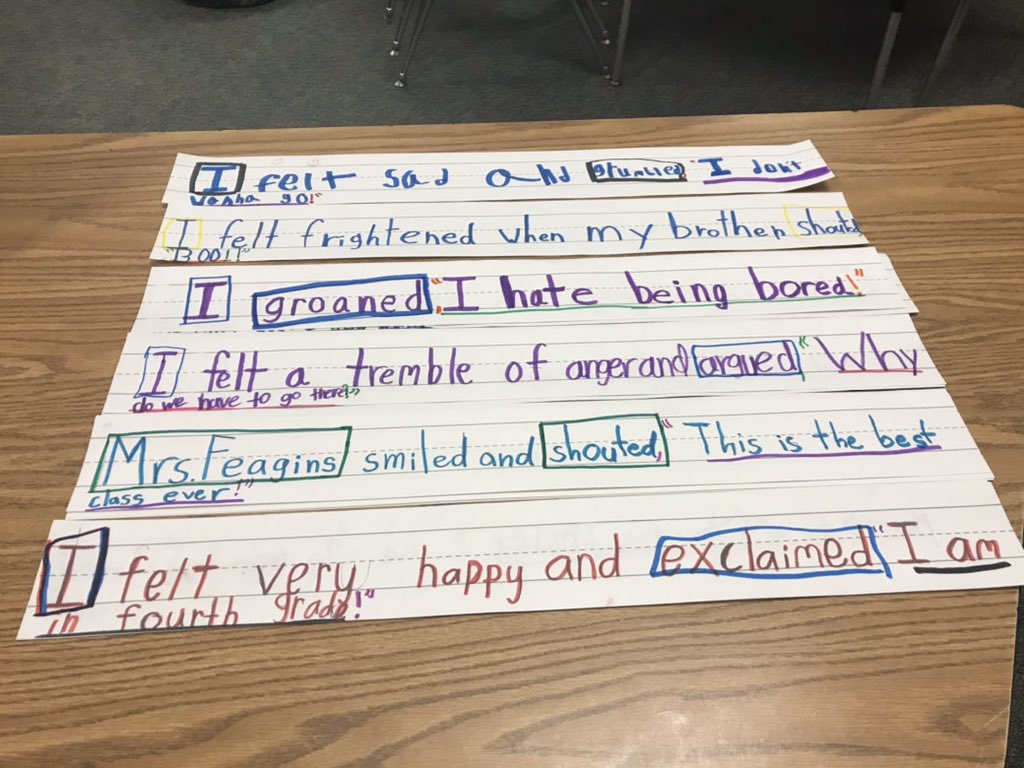 I felt sad and "I don't
wanna go!"
I felt frightened when my brother
"BOO!!"
I groaned, "I hate being bored!"
I felt a tremble of anger and argued "Why
do we have to go there?"
Mrs. Feagins smiled and shouted, "This is the best
class ever!"
I felt very happy and exclaimed "I am
in fourth grade!"